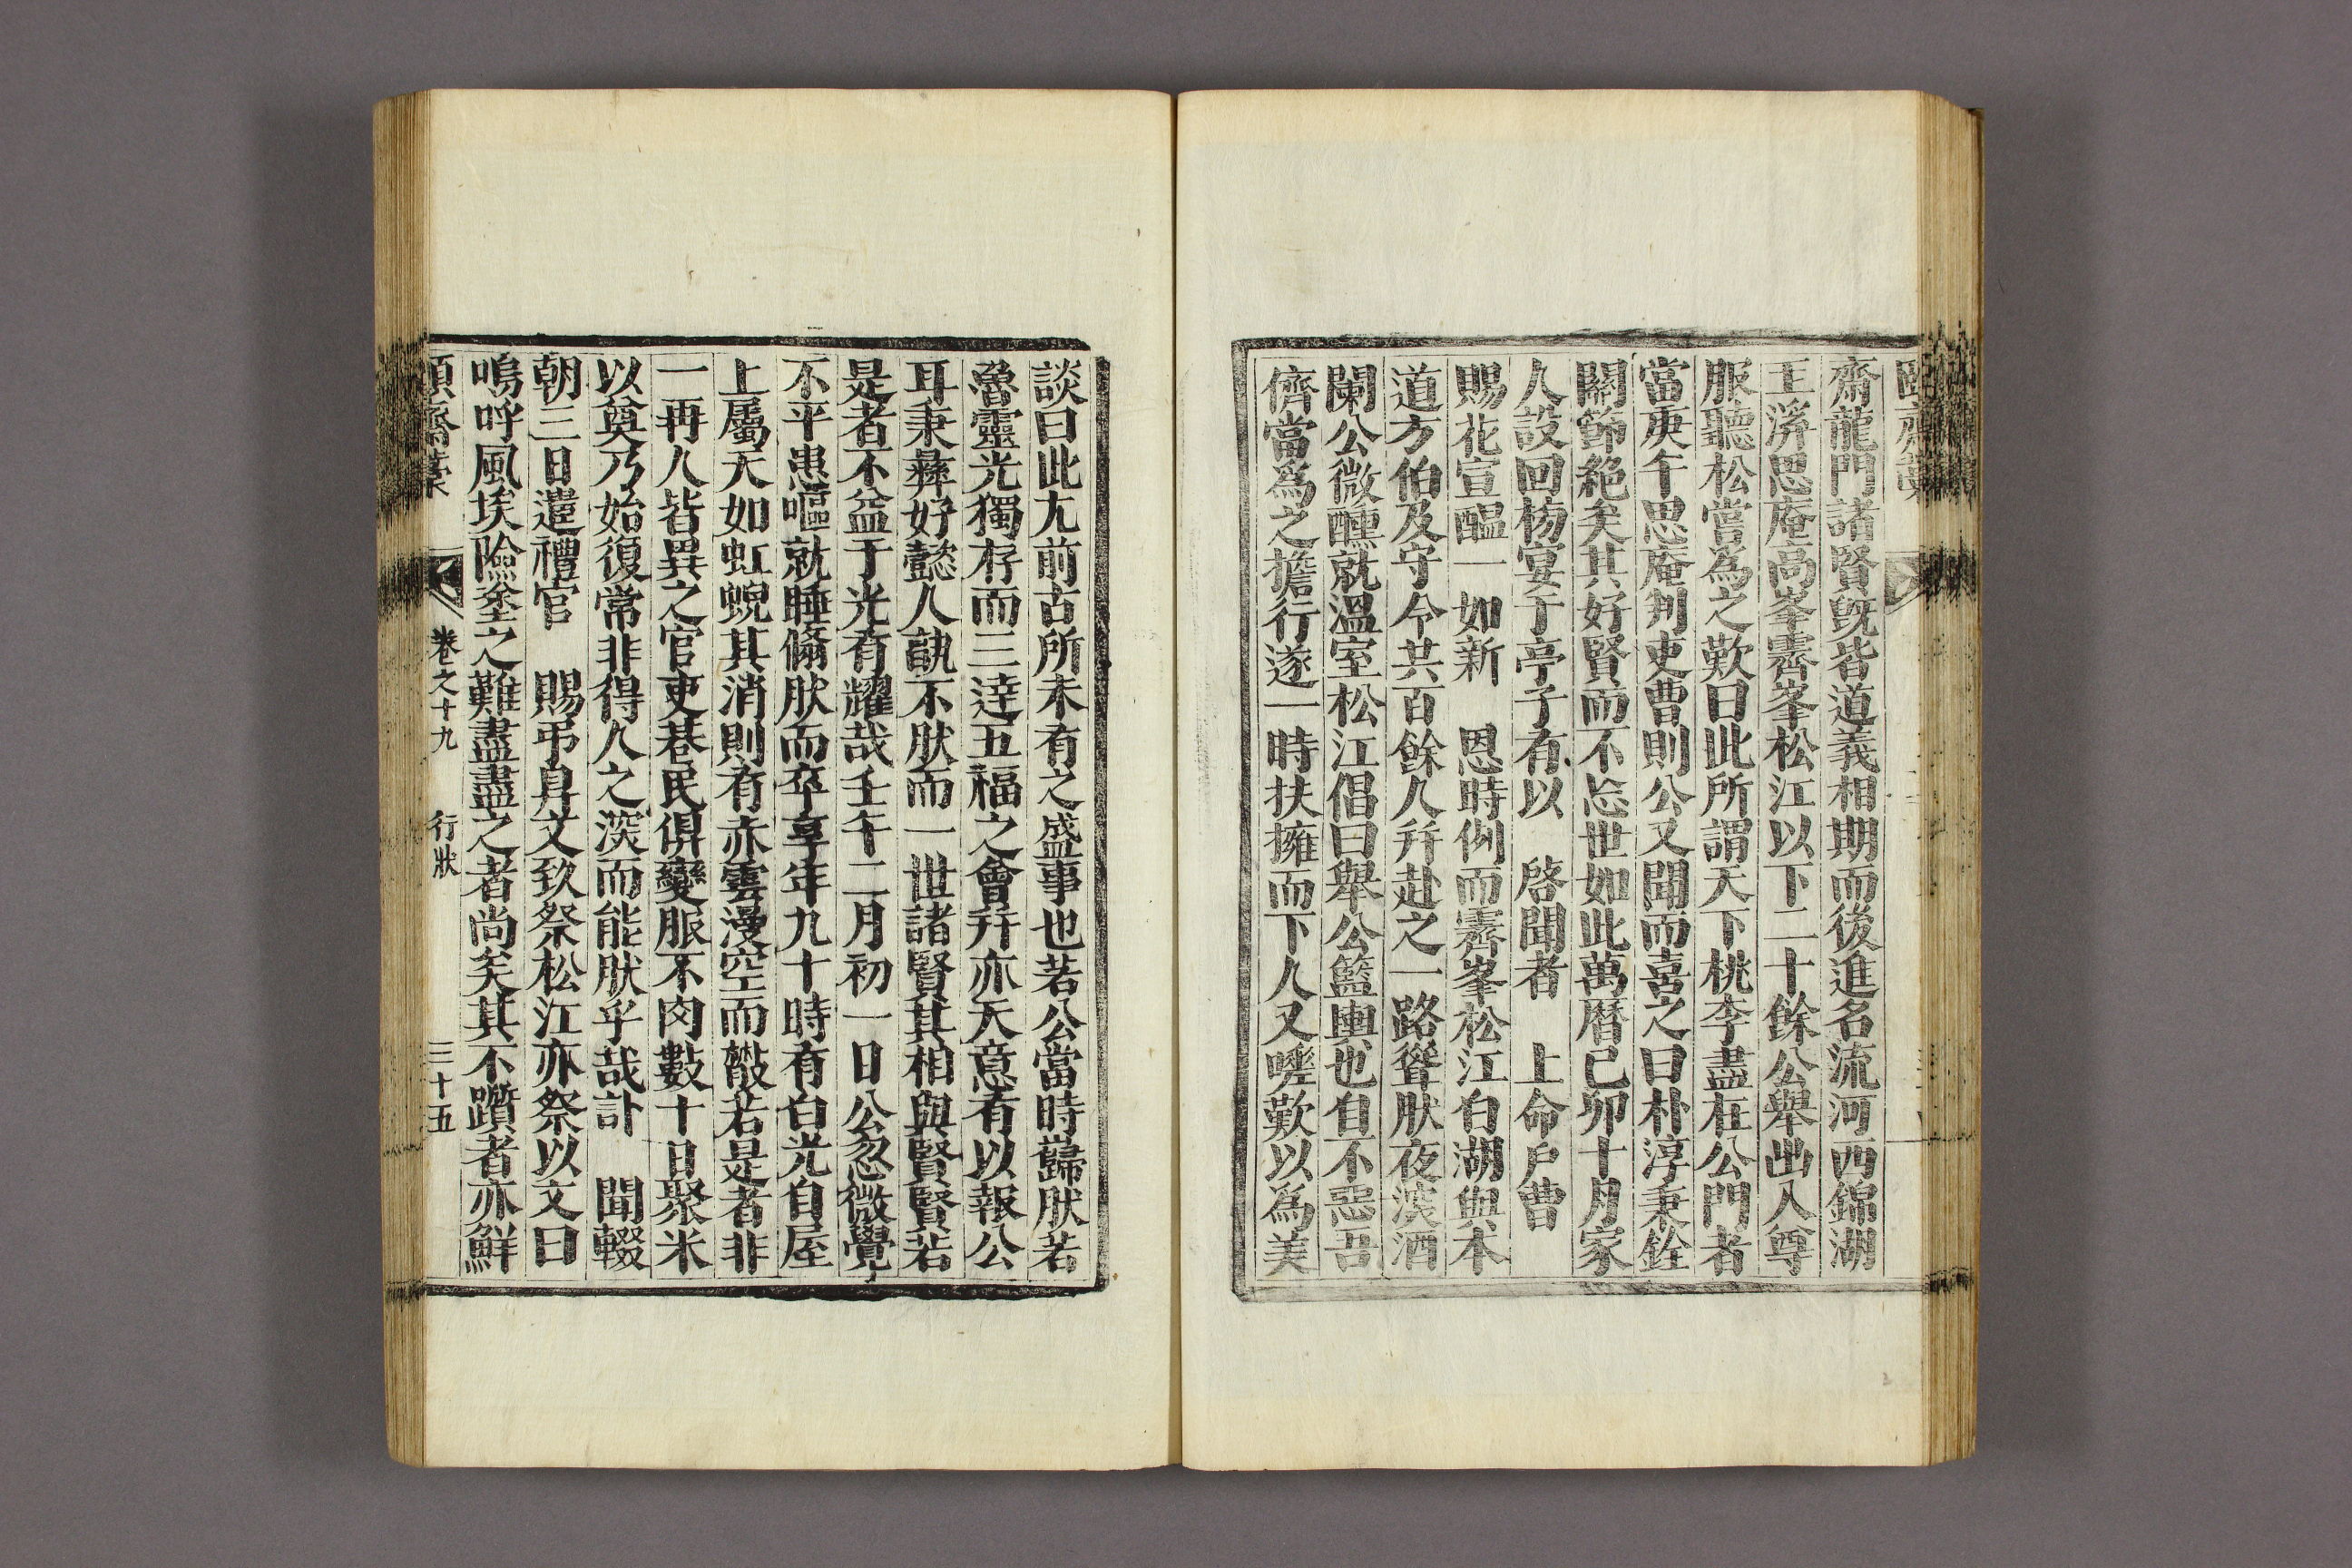 齋龍門諸賢旣皆道義相期而後進名流河西錦湖
王㴻思庵高峯霽峯松江以下二十餘公舉出入尊
服聽松嘗為之歎曰此所謂天下桃李盡在公門者
當庚午思庵判吏曹則公又聞而喜之曰朴淳秉銓
關節絶矣其好賢而不忘世如此萬曆己卯十月家
人設回榜宴于亭子有以 啓聞者 上命戶曹
賜花宣醞一如新 恩時例而霽峯松江白湖與本
道方伯及守令共百餘人幷赴之一路聳肰夜深酒
闌公微醺就溫室松江倡曰舉公籃輿也自不惡吾
儕當爲之擔行遂一時扶擁而下人又嗟歎以爲美
談曰此尢前古所未有之盛事也若公當時巋肰若
魯靈光獨存而三達五福之會幷亦天意有以報公
耳秉彝好懿人孰不肰而一世諸賢其相與賢賢若
是者不益于光有耀哉壬午二月初一日公忽微覺
不平患嘔就睡翛肰而卒享年九十時有白光自屋
上屬天如虹蜺其消則有赤雲漫空而散若是者非
一再人皆異之官吏巷民俱變服不肉數十日聚米
以奠乃始復常非得人之深而能肰乎哉訃 聞輟
朝三日遣禮官 賜弔身文致祭松江亦祭以文曰
嗚呼風埃險塗之難盡盡之者尚矣其不躓者亦鮮
頤齋藁 卷之十九 行狀 三十五